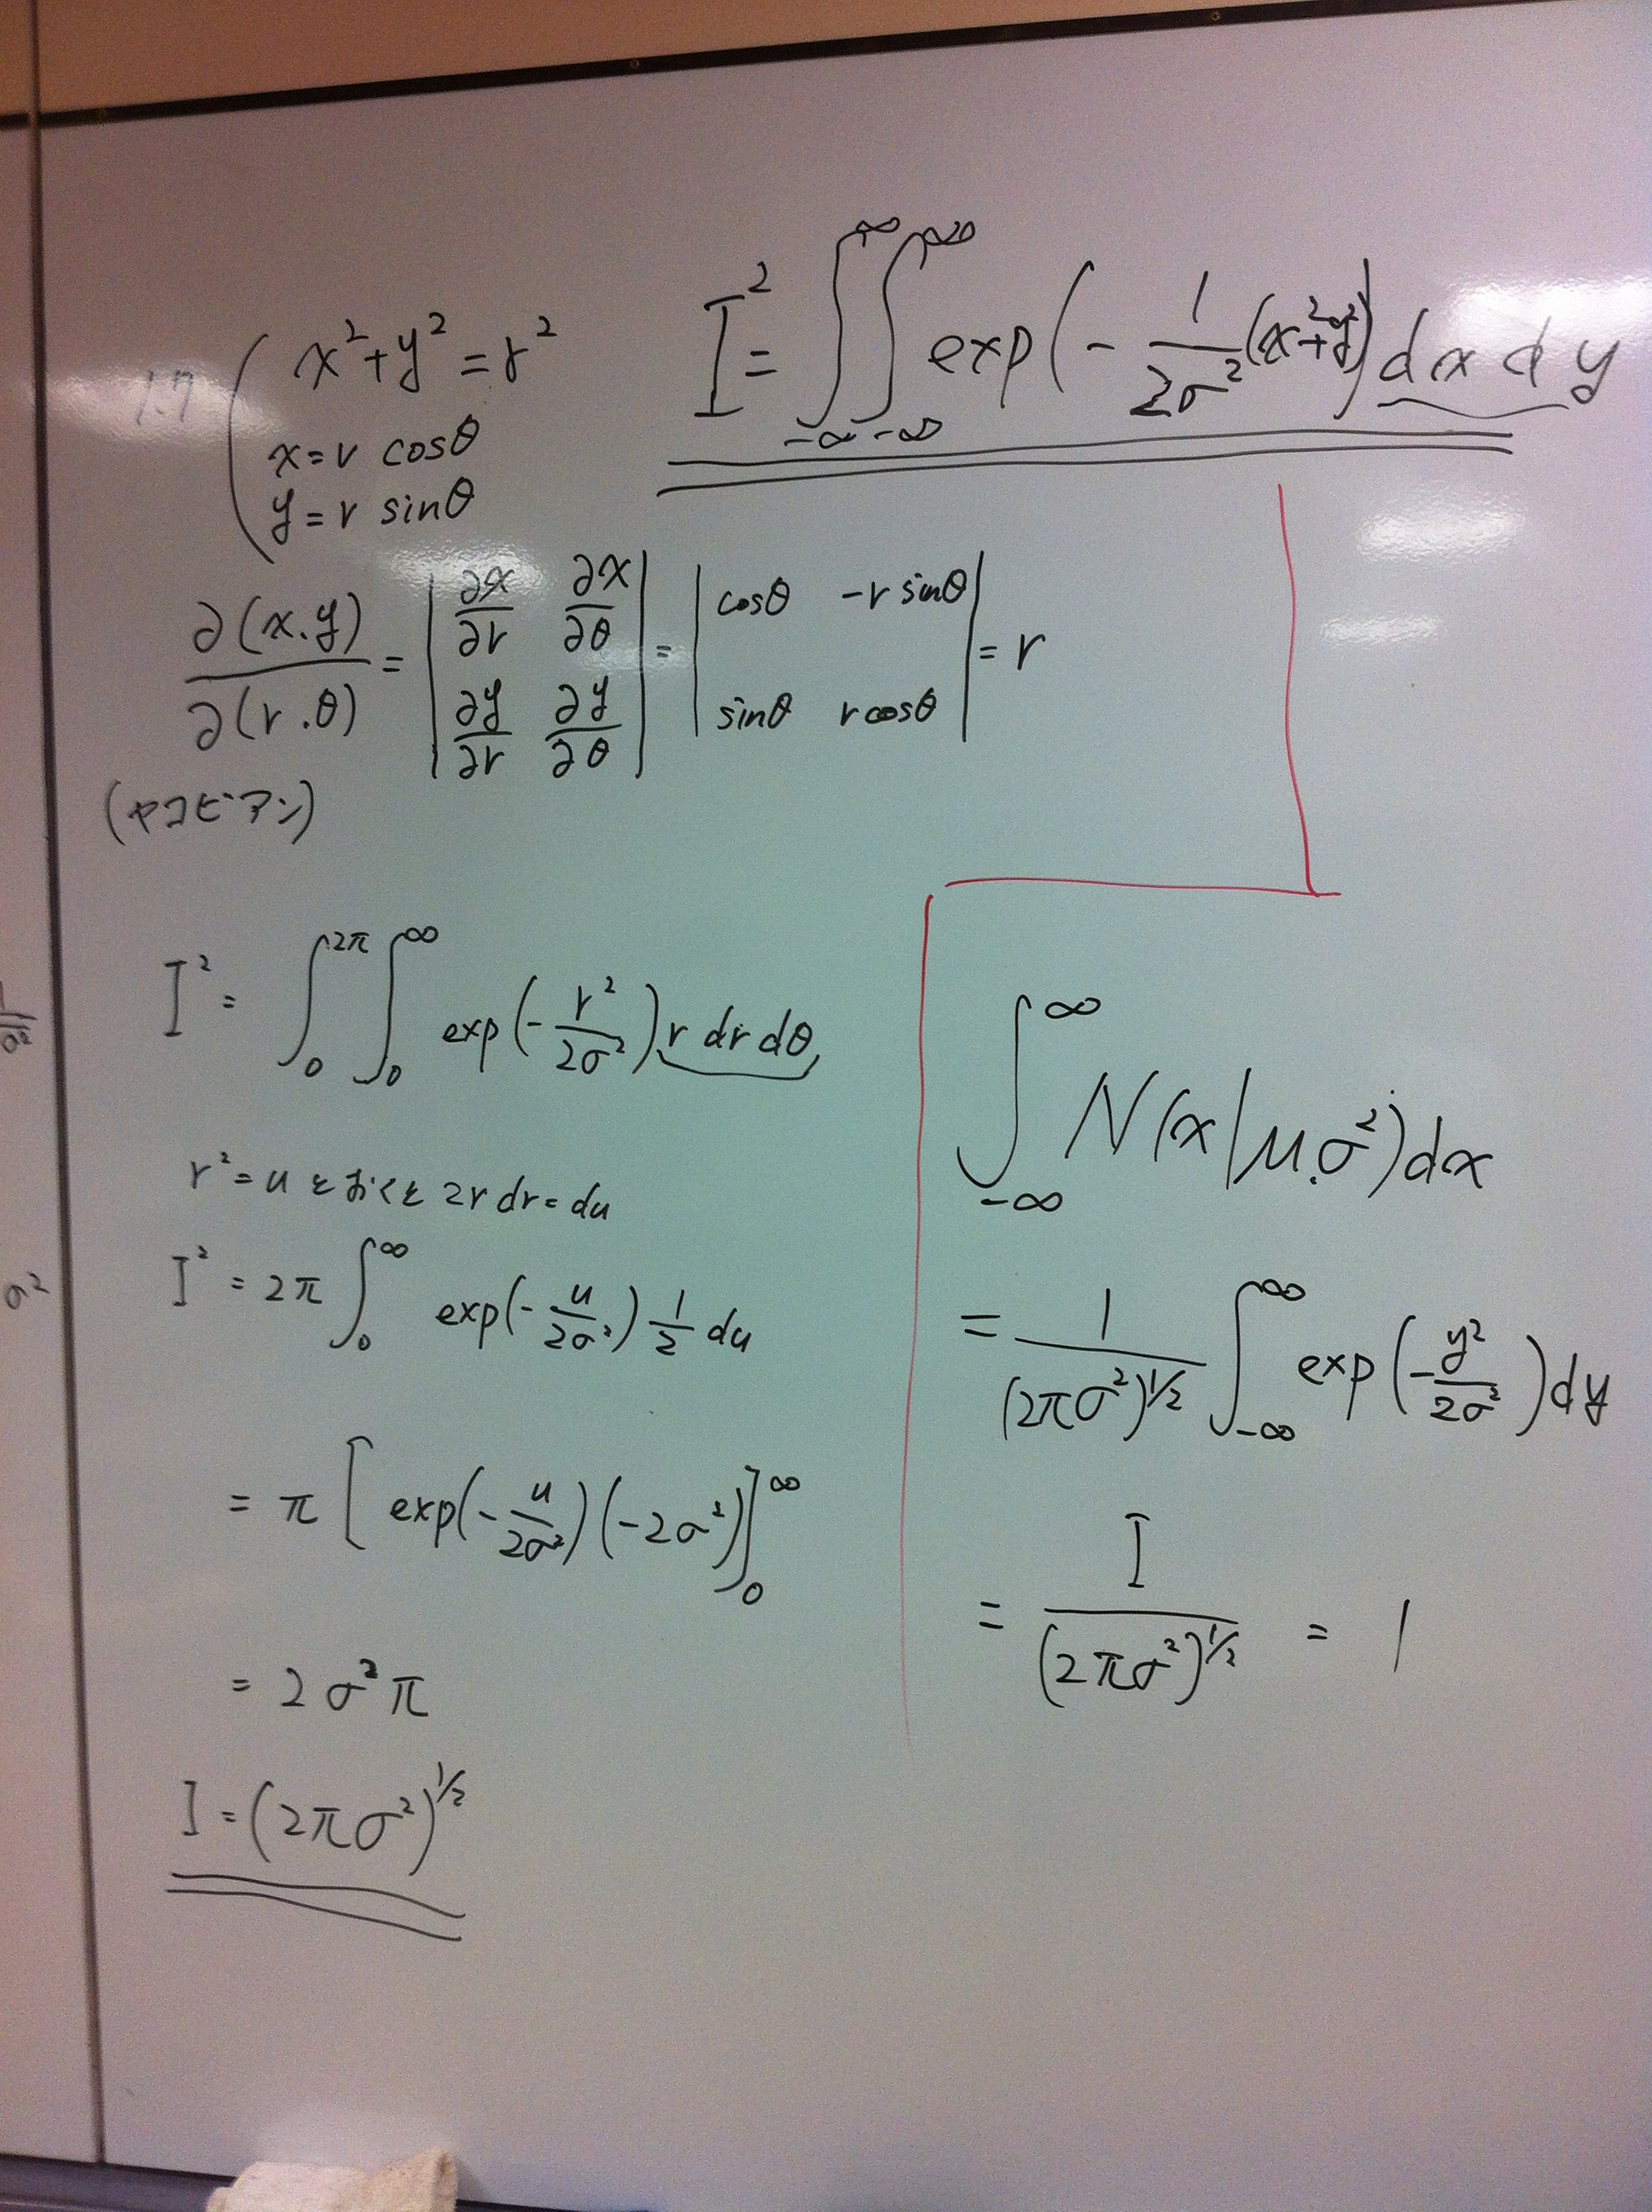 1.7
x²+y²=r²
x=r cosθ
y=r sinθ
I² = ∫_{-∞}^{∞} ∫_{-∞}^{∞} exp(-1/2σ² (x²+y²)) dx dy
∂(x.y)/∂(r.θ) = |∂x/∂r ∂x/∂θ ∂y/∂r ∂y/∂θ| = |cosθ -r sinθ sinθ r cosθ| = r
(ヤコビアン)
I² = ∫_0^{2π} ∫_0^∞ exp(-r²/2σ²) r dr dθ
r²=u とおくと 2r dr = du
I² = 2π ∫_0^∞ exp(-u/2σ²) 1/2 du
= π [exp(-u/2σ²)(-2σ²)]_0^∞
= 2σ²π
I = (2πσ²)^{1/2}
∫_{-∞}^{∞} N(x|μ.σ²)dx
= 1/(2πσ²)^{1/2} ∫_{-∞}^{∞} exp(-y²/2σ²)dy
= I/(2πσ²)^{1/2} = 1
σ²